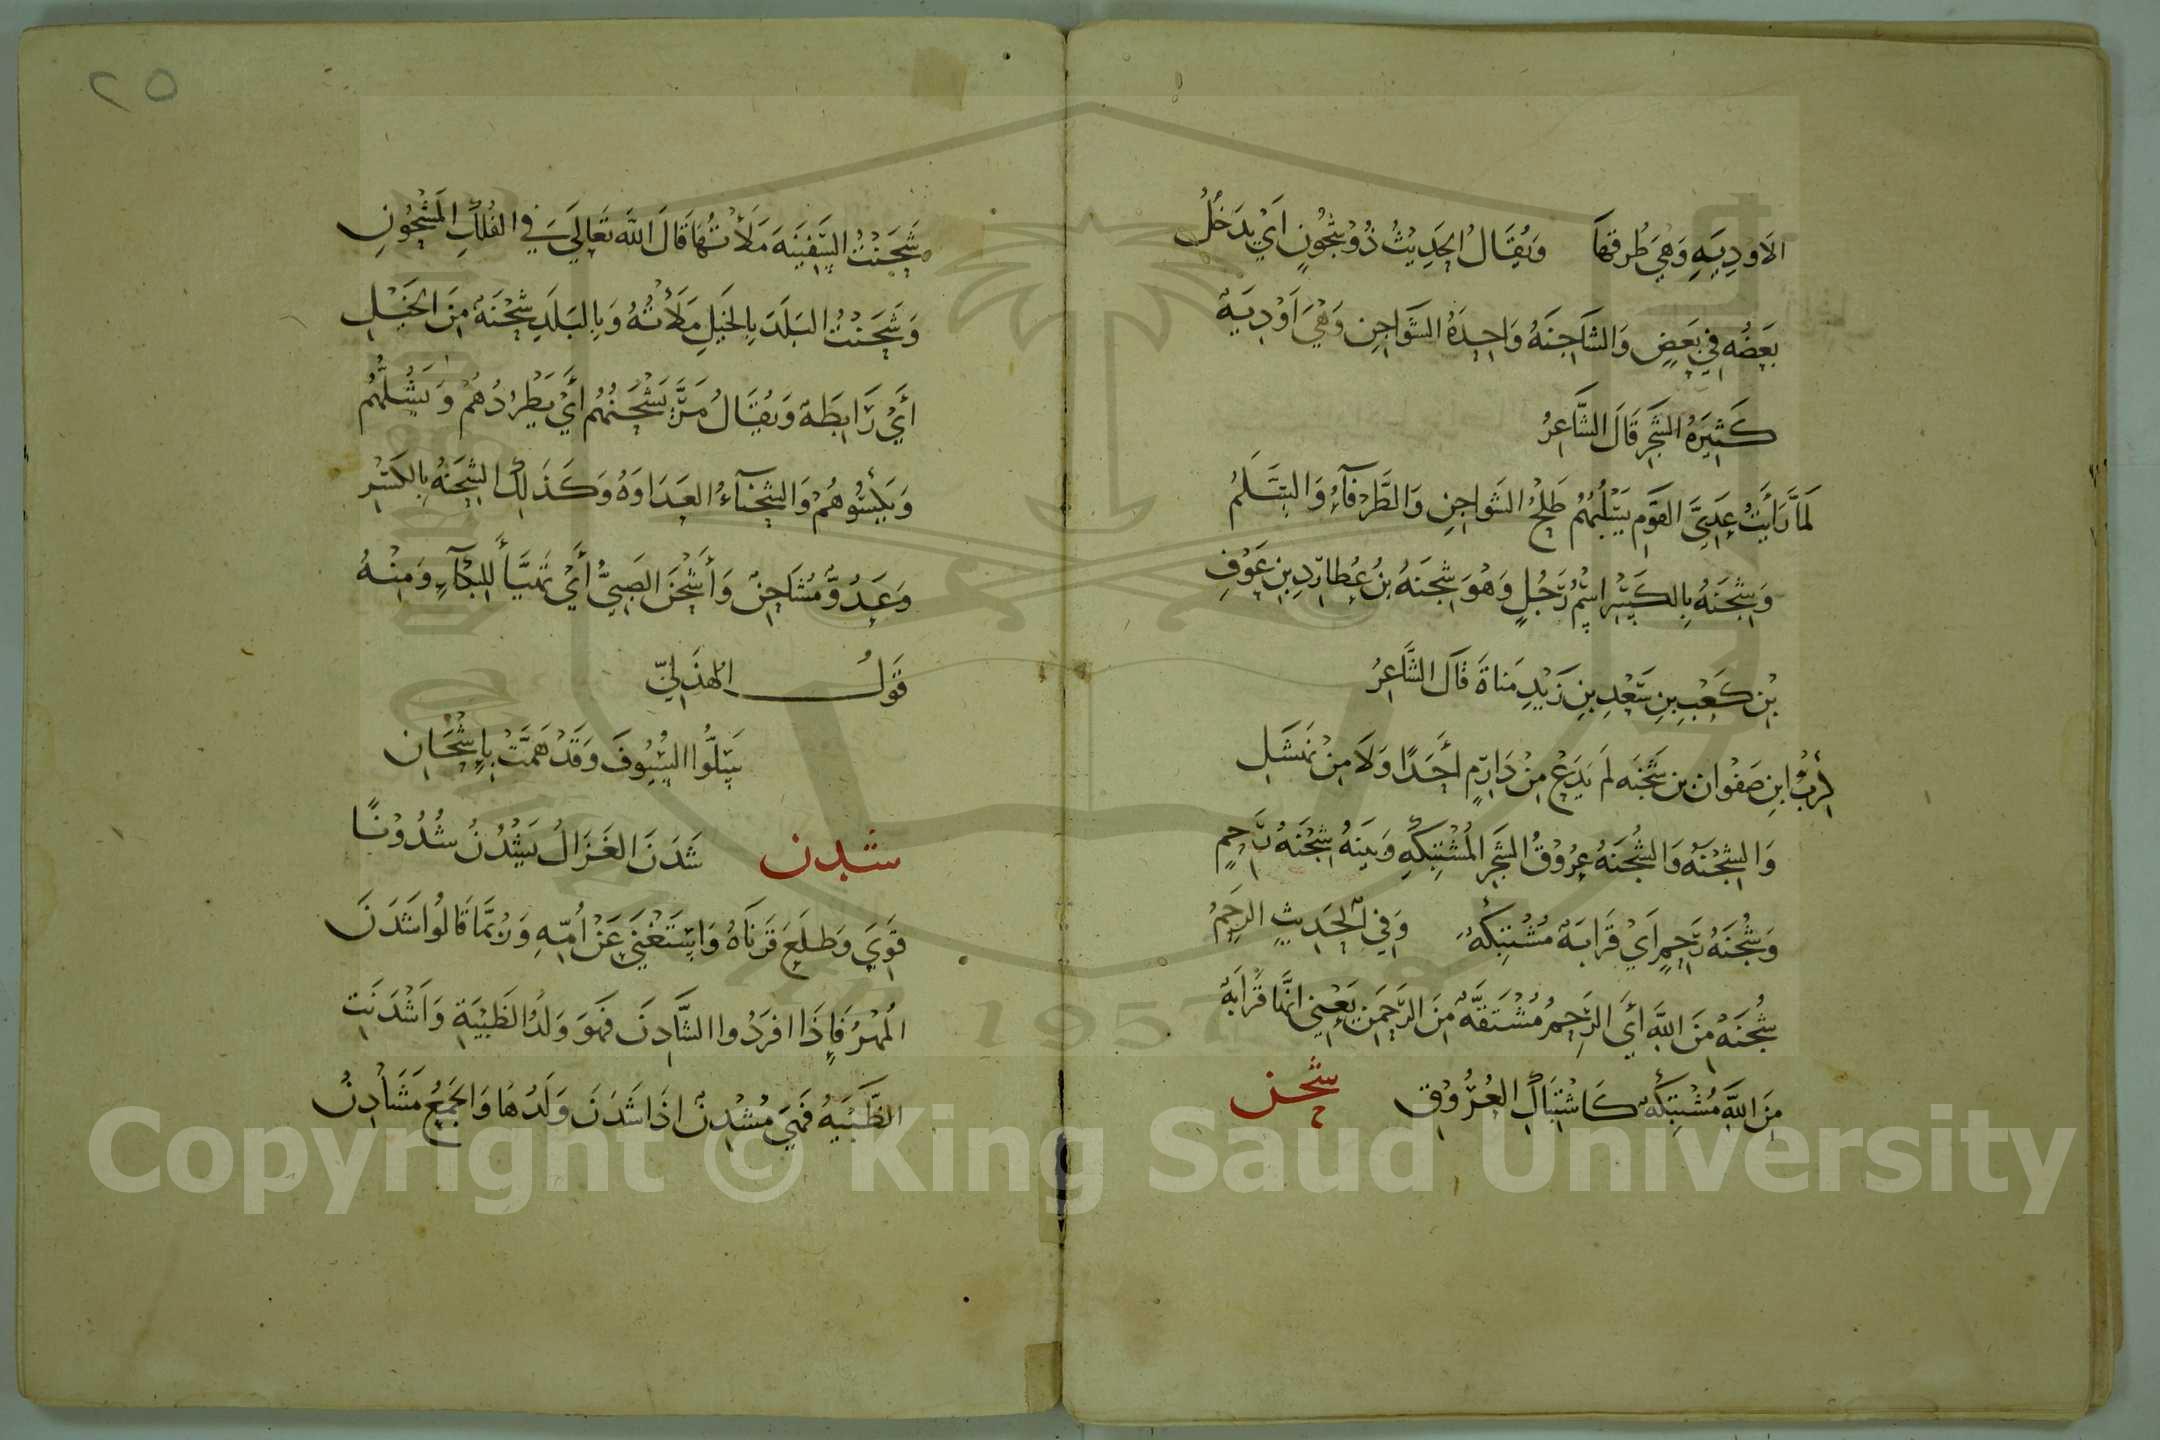 الاَوْدِيَةِ وَهِيَ طُرقهَا وَيُقَالُ الحَدِيْثُ ذُوْ شُجُونٍ اَيْ يَدْخُلُ
بَعْضُهُ فِي بَعْضٍ وَالشَّاجِنَةُ وَاحِدَةُ الشَّوَاجِنِ وَهْيَ اَوْدِيَةٌ
كَثِيْرَةُ الشَّجَرِ قَالَ الشَّاعِرُ
لَمَّا رَأَيْتُ عَدِيَّ القَوْمِ يَسْلُبُهُمْ طَلْحُ الشَوَاجِنِ وَالطَّرْفَآءُ وَالسَّلَمُ
وَشِجْنَةُ بِالكَسْرِ اسْمُ رَجُلٍ وَهْوَ شِجْنَةُ بْنُ عُطَارِدِ بنِ عَوْفِ
بْنِ كَعْبِ بنِ سَعْدِ بنِ زَيْدِ مَنَاةَ قَالَ الشَّاعِرُ
كَرِبُ ابنِ صَفْوَان بن شِجْنَه لَمْ يَدَعْ مِنْ دَارِمٍ اَحَدًا وَلَا مِنْ نَهْشَلِ
وَالشِّجْنَةُ وَالشُّجْنَةُ عِرُوْقُ الشَّجَرِ المُشْتَبِكَةِ وَبَيْنَهُ شِجْنَةُ رَحِمٍ
وَشُجْنَةُ رَحِمٍ اَيْ قَرَابَةٌ مُشْتَبِكَةٌ وَفِي الْحَدِيْثِ الرَحِمُ
شُجْنَةٌ مِنَ اللهِ أَيْ الرَّحِمُ مُشْتَقَّةٌ مِنَ الرَّحْمَنِ يَعْنِي انَّهَا قَرَابَةٌ
مِنَ اللهِ مُشْتَبِكَةٌ كَاشْتِبَاكِ العُرُوْقِ شحن
شَحَنْتُ السَّفِيْنَةَ مَلَأْتُهَا قَالَ اللهُ تَعَالَى فِي الفُلْكِ المَشْحُوْنِ
وَشَحَنْتُ البَلَدَ بِالخَيْلِ مَلَأْتُهُ وَبِالبَلَدِ شِحْنَةٌ مِنَ الخَيْلِ
أَيْ رَابِطَة وَيُقَالُ مَرَّ يَشْحَنُهُم أَيْ يَطْرُدُهُمْ وَيَشُلُّهُمْ
وَيَكْسُوهُمْ وَالشَّحْنَآءُ العَدَاوَةُ وَكَذَلِكَ الشِّحْنَةُ بِالكَسْرِ
وَعَدُوٌّ مُشَاحِنٌ وَأَشْحَنَ الصَّبِيُّ أَيْ تَهَيَّأَ لِلبُكَآءِ وَمِنْهُ
قَوْلُ الهُذَلِيّ
سَلُّوا السُّيُوفَ وَقَدْ هَمَّتْ بِإِشْحَانِ
شدن شَدَنَ الغَزَالُ يَشْدُنُ شُدُوْنًا
قَوِيَ وَطَلَعَ قَرْنَاهُ وَاسْتَغْنَى عَنْ اُمِّهِ وَرُبَّمَا قَالُوا شَدَنَ
المُهْرُ فَإِذَا افرَدُوا الشَّادِنَ فَهوَ وَلَدُ الظَبْيَةِ وَاَشْدَنَتِ
الظَّبْيَةُ فَهْيَ مُشْدِنٌ اذَا شَدَنَ وَلَدُهَا وَالجَمْعُ مَشَادِنُ
٢٥
Copyright © King Saud University
1957